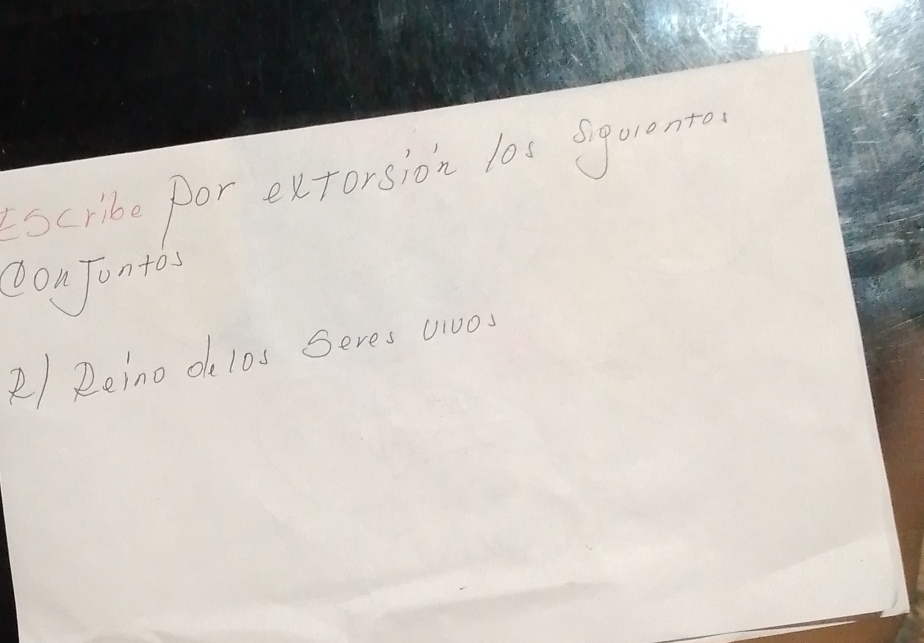 Escribe por extorsión los siguientos
Conjuntos
R) Reino de los Seres vivos